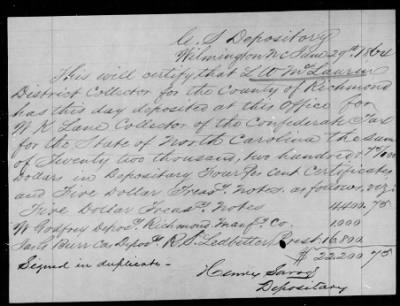 C. S. Depository
Wilmington NC June 29th 1864
This will certify that L W McLaurin
District Collector for the County of Richmond
has this day deposited at this Office for
W K Lane Collector of the Confederate Tax
for the State of North Carolina the sum
of Twenty two thousand, two hundred 75/100
Dollars in Depositary Four Per Cent Certificates
and Five Dollar Treasy. Notes. as follows. viz:
Five Dollar Treasy. Notes 4400.75
W Godfrey Depos. Richmond Manfg. Co. 1000
Depos. R. S. Ledbetter Prest. 16.800
$ 22200 75
Signed in duplicate -
Henry Savage
Depositary